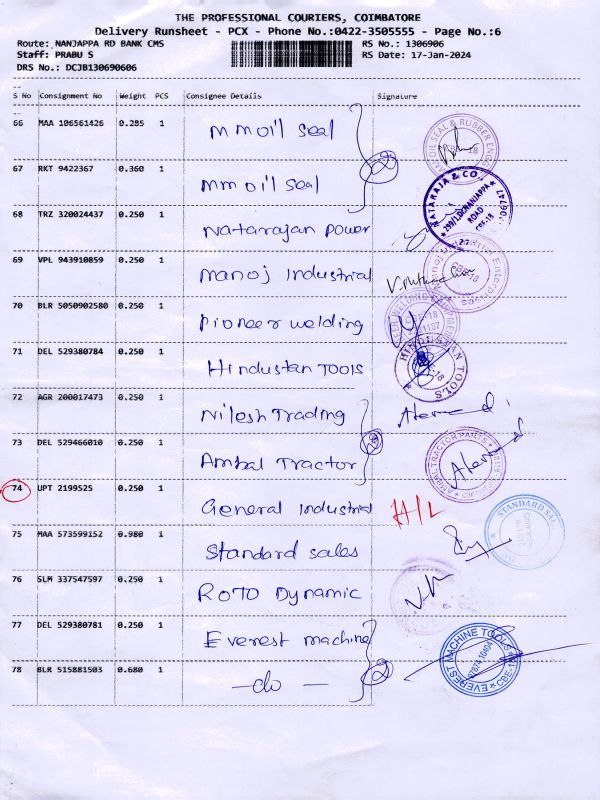 THE PROFESSIONAL COURIERS, COIMBATORE
Delivery Runsheet - PCX - Phone No.:0422-3505555 - Page No.:6
Route: NANJAPPA RD BANK CMS RS No.: 1306906
Staff: PRABU S RS Date: 17-Jan-2024
DRS No.: DCJB130690606
S No Consignment No Weight PCS Consignee Details Signature
66 MAA 106561426 0.285 1 mm oil seal
67 RKT 9422367 0.360 1 mm oil seal
68 TRZ 320024437 0.250 1 Natarajan power
69 VPL 943910859 0.250 1 Manoj Industrial
70 BLR 5050902580 0.250 1 Pioneer welding
71 DEL 529380784 0.250 1 Hindustan TOOLS
72 AGR 200017473 0.250 1 Nilesh Trading
73 DEL 529466010 0.250 1 Ambal Tractor
74 UPT 2199525 0.250 1 General Industrial H/L
75 MAA 573599152 0.980 1 Standard sales
76 SLM 337547597 0.250 1 ROTO Dynamic
77 DEL 529380781 0.250 1 Everest machine
78 BLR 515881503 0.680 1 -do-
OIL SEAL & RUBBER ENGG
NATARAJA & CO.
ROAD
CBE-18
HINDUSTAN TOOLS
TRACTOR PARTS
STANDARD SAL
EVEREST MACHINE TOOLS